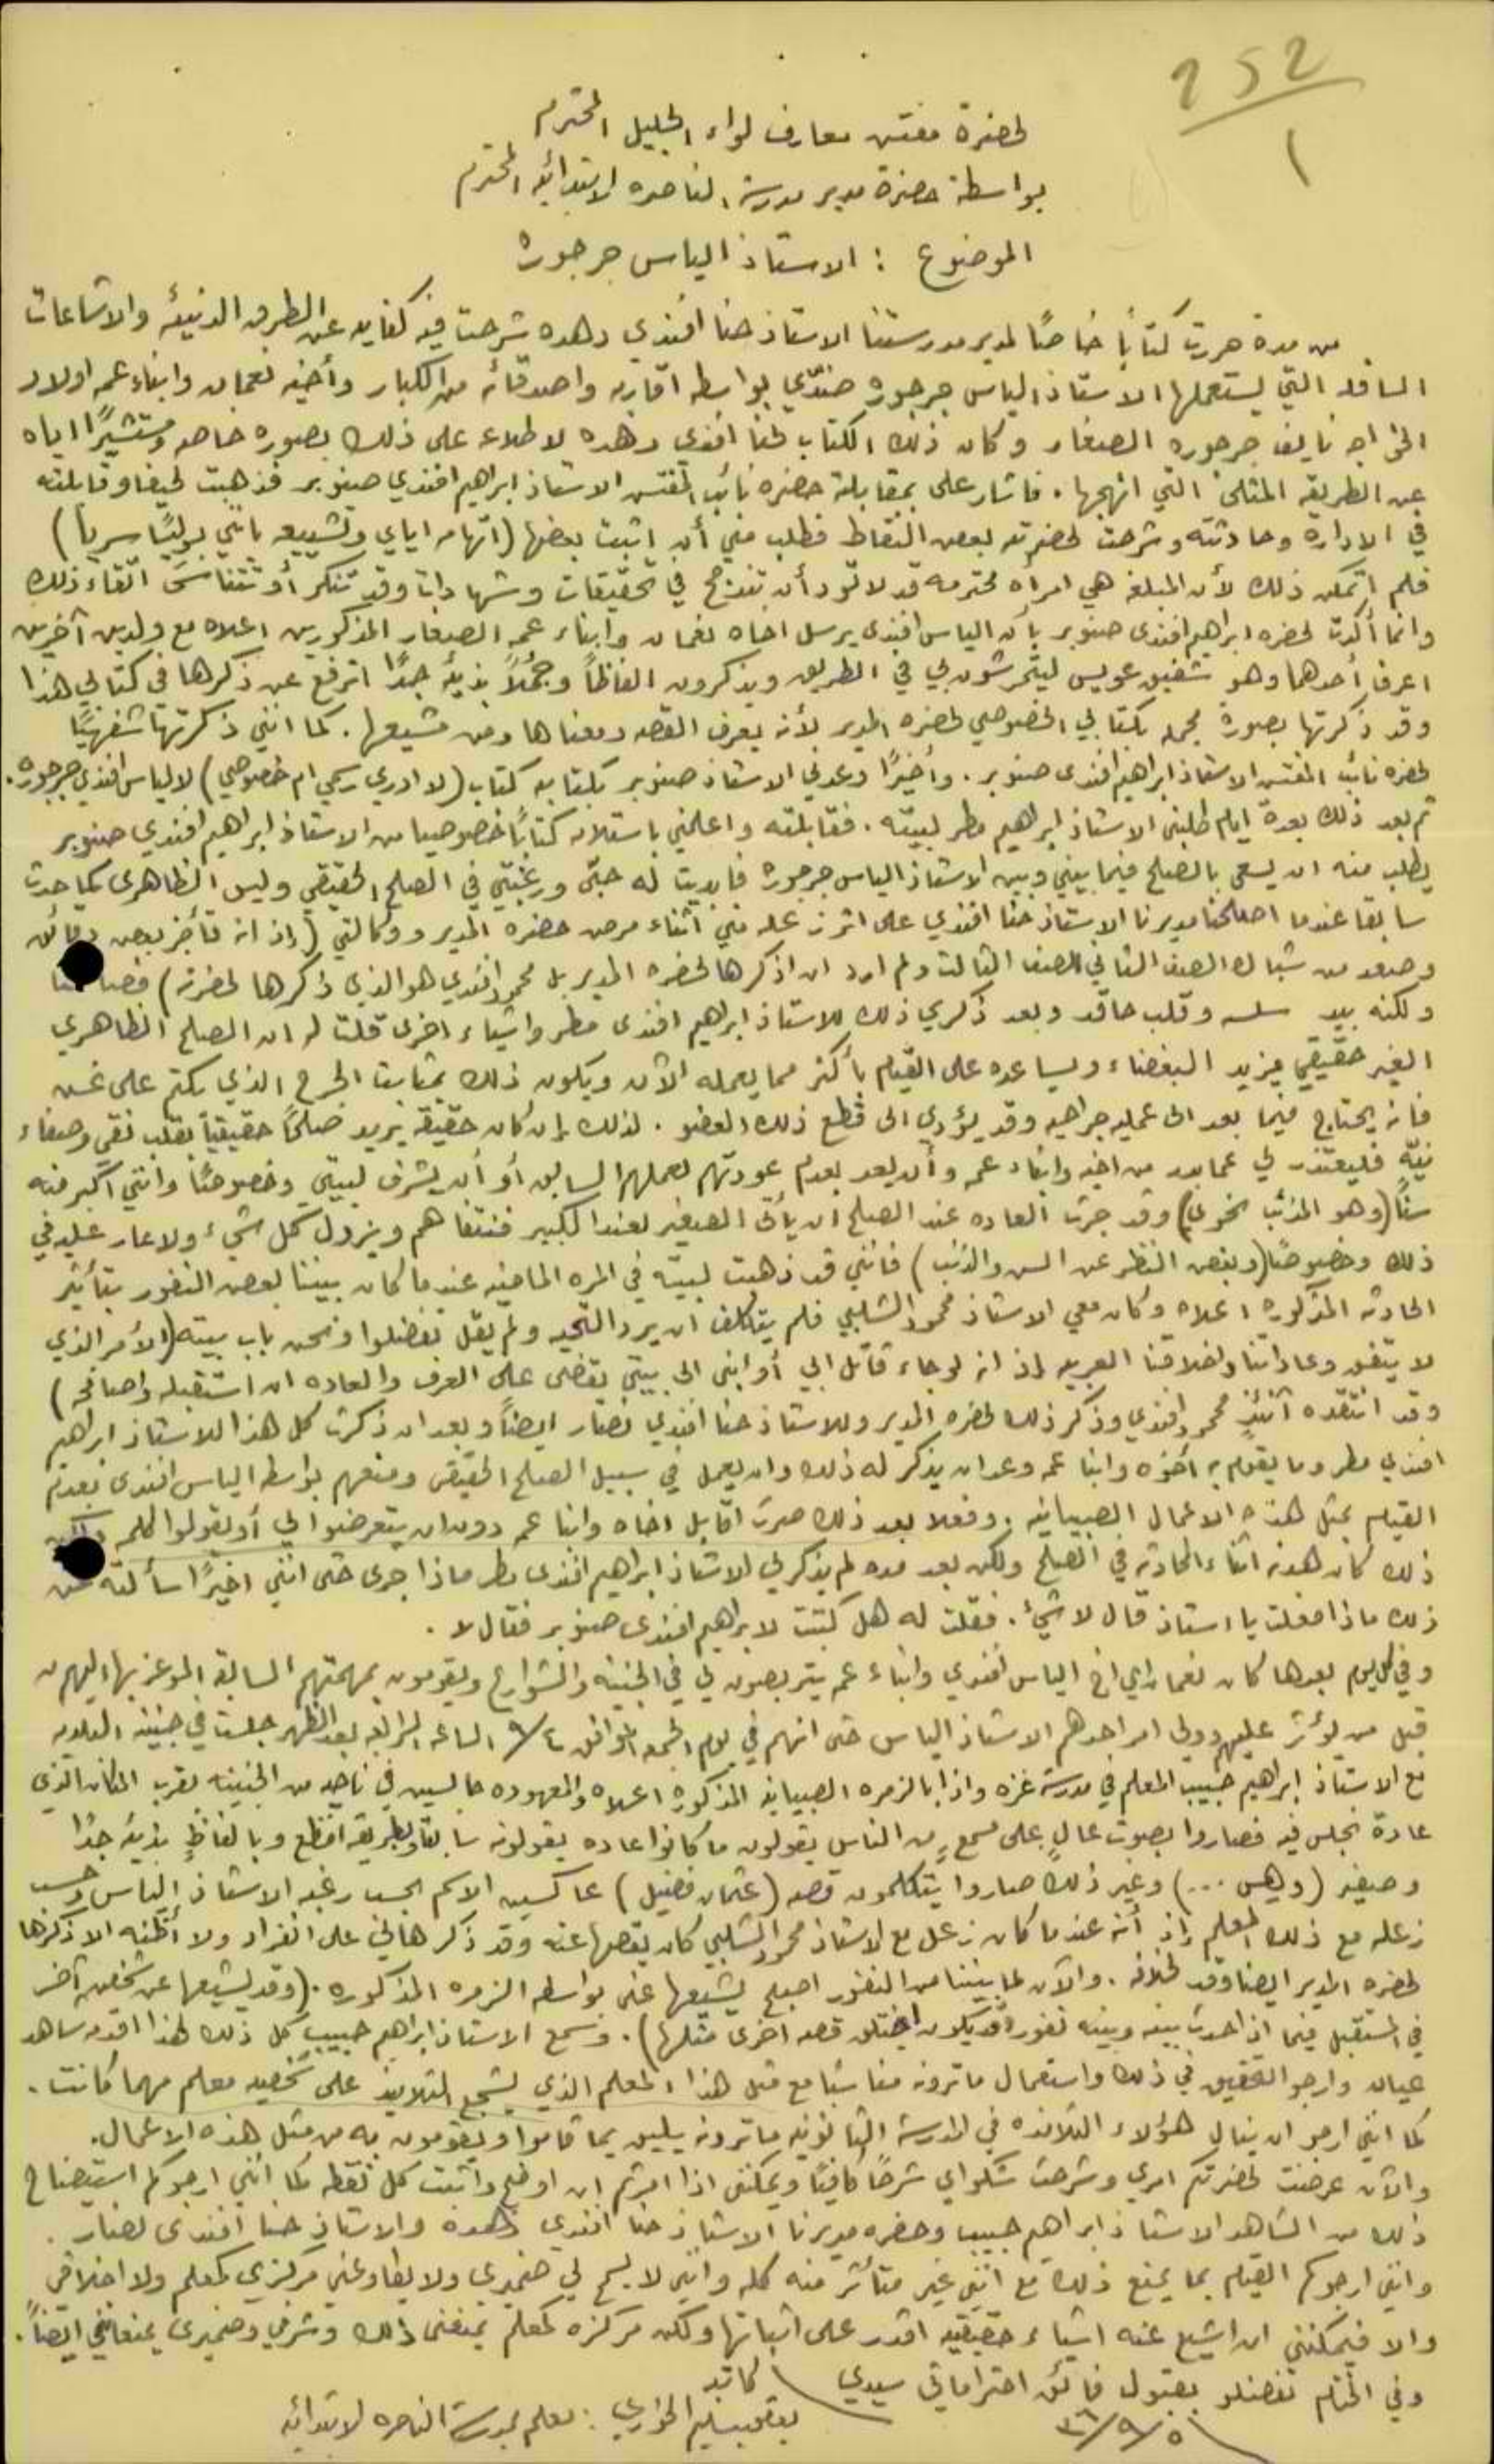 252
١
لحضرة مفتش معارف لواء الجليل المحترم
بواسطة حضرة مدير مدرسة الناصره الابتدائيه المحترم
الموضوع : الاستاذ الياس جرجوره
من مدة حررت كتابًا خاصًا لمدير مدرستنا الاستاذ حنا افندي دهده شرحت فيه كفايه عن الطرق الدنيئه والاشاعات
السافله التي يستعملها الاستاذ الياس جرجوره ضدّي بواسطه اقاربه واصدقائه من الكبار وأخيه نعمان وابناء عمه اولاد
الخواجه نايف جرجوره الصغار وكان ذلك الكتاب لحنا افندي دهده لاطلاعه على ذلك بصوره خاصه ومستشيرًا اياه
عن الطريقه المثلى التي انهجها . فاشار علي بمقابلة حضره نائب المفتش الاستاذ ابراهيم افندي صنوبر فذهبت لحيفا وقابلته
في الادارة وحادثته وشرحت لحضرته بعض النقاط فطلب مني أن اثبت بعضها (اتهامه اياي وتشييعه بانني بوليسًا سريا)
فلم اتمكن ذلك لأن المبلغه هي امرأه محترمه قد لا تود أن تندمج في تحقيقات وشهادات وقد تنكر أو تتناسى اتقاء ذلك
وانما أكدت لحضره ابراهيم افندي صنوبر بأن الياس افندي يرسل اخاه نعمان وابناء عمه الصغار المذكورين اعلاه مع ولدين آخرين
اعرف أحدهما وهو شفيق عويس ليتحرشون بي في الطريق ويذكرون الفاظاً وجُملاً بذيئه جدًا اترفع عن ذكرها في كتابي هذا
وقد ذكرتها بصورة مجمله بكتابي الخصوصي لحضره المدير لأنه يعرف القصه ومعناها ومن مشيعها . كما انني ذكرتها شفهيًا
لحضره نائب المفتش الاستاذ ابراهيم افندي صنوبر . وأخيرًا وعدني الاستاذ صنوبر بكتابه كتاب (لا ادري رسمي ام خصوصي) لالياس افندي جرجوره .
ثم بعد ذلك بعدة ايام طلبني الاستاذ ابراهيم مطر لبيته . فقابلته واعلمني باستلامه كتاباً خصوصيا من الاستاذ ابراهيم افندي صنوبر
يطلب منه ان يسعى بالصلح فيما بيني وبين الاستاذ الياس جرجوره فابديت له حبّي ورغبتي في الصلح الحقيقي وليس الظاهري كما حدث
سابقا عندما اصلحنا مديرنا الاستاذ حنا افندي على اثر زعله مني اثناء مرض حضره المدير ووكالتي (إذ انه تأخر بعض دقائق
وصعد من شباك الصف الثاني للصف الثالث ولم ارد ان اذكرها لحضره المدير بل محمود افندي هو الذي ذكرها لحضرته)
ولكنه بيد وقلب حاقد وبعد ذكري ذلك للاستاذ ابراهيم افندي مطر واشياء اخرى قلت له ان الصلح الظاهري
الغير حقيقي يزيد البغضاء ويساعده على القيام بأكثر مما يعمله الآن ويكون ذلك بمثابة الجرح الذي يكتم على غش
فانه يحتاج فيما بعد الى عمليه جراحيه وقد يؤدي الى قطع ذلك العضو . لذلك إن كان حقيقة يريد صلحًا حقيقياً بقلب نقي وصفاء
نيّه فليعتذر لي عما بدر من اخيه وابناء عمه وأن يعد بعدم عودتهم لعملهم السابق أو أن يشرف لبيتي وخصوصًا وانني اكبر منه
سنًا (وهو المذنب نحوي) وقد جرت العاده عند الصلح ان يأتي الصغير لعند الكبير فنتفاهم ويزول كل شيء ولا عار عليه في
ذلك وخصوصًا (وبغض النظر عن السن والذنب) فانني قد ذهبت لبيته في المره الماضيه عندما كان بيننا بعض النفور بتأثير
الحادثه المذكوره اعلاه وكان معي الاستاذ محمود الشلبي فلم يتكلف ان يرد التحيه ولم يقل تفضلوا ونحن بباب بيته (الأمر الذي
لا يتفق وعاداتنا واخلاقنا العربيه إذ انه لو جاء قاتل ابي أو ابني الى بيتي تقضي علي العرف والعاده ان استقبله واصافحه)
وقد انتقده آنئذٍ محمود افندي وذكر ذلك لحضره المدير وللاستاذ حنا افندي نصار ايضاً وبعد ان ذكرت كل هذا للاستاذ ابراهيم
افندي مطر وما يقوم به أخوه وابنا عمه وعد ان يذكر له ذلك وان يعمل في سبيل الصلح الحقيقي ومنعهم بواسطه الياس افندي بعدم
القيام بمثل هذه الاعمال الصبيانيه . وفعلا بعد ذلك صرت اقابل اخاه وابنا عمه دون ان يتعرضوا لي أو يقولوا كلمه
ذلك كان هدنه اثناء المحادثه في الصلح ولكن بعد مده لم يذكر لي الاستاذ ابراهيم افندي مطر ماذا جرى حتى انني اخيرًا سألته عن
ذلك ماذا فعلت يا استاذ قال لا شيء . فقلت له هل كتبت لابراهيم افندي صنوبر فقال لا .
وفي كل يوم بعدها كان نعمان اي اخ الياس افندي وابناء عمه يتربصون لي في الجنينه والشوارع ويقومون بمهمتهم السابقه الموعز بها اليهم من
قبل من يؤثر عليهم وولي امر احدهم الاستاذ الياس حتى انهم في يوم الجمعه الموافق ٩/٤ الساعه الرابعه بعد الظهر جلست في جنينه البلديه
مع الاستاذ ابراهيم حبيب المعلم في مدرسة غزه واذا بالزمره الصبيانيه المذكوره اعلاه والمعهوده جالسين في ناحيه من الجنينه بقرب المكان الذي
عادة نجلس فيه فصاروا بصوت عالٍ على مسمعٍ من الناس يقولون ما كانوا عاده يقولونه سابقا وبطريقه افظع وبالفاظٍ بذيئه جدًا
وصفير (وهس ...) وغير ذلك صاروا يتكلمون قصه (عثمان فضيل) عاكسين الاسم بحسب رغبه الاستاذ الياس وحسب
زعله مع ذلك المعلم إذ أنه عندما كان زعل مع الاستاذ محمود الشلبي كان يقصها عنه وقد ذكر هالي على انفراد ولا أظنه الا ذكرها
لحضره المدير ايضا وقد لخلافه . والآن لما بيننا من النفور اصبح يشيعها عني بواسطه الزمره المذكوره . (وقد يشيعها عن شخص آخر
في المستقبل فيما اذا حدث بينه وبينه نفور وقد يكون اختلق قصه اخرى مثلها) . وسمع الاستاذ ابراهيم حبيب كل ذلك لهذا اقدمه شاهد
عيان وارجو التحقيق في ذلك واستعمال ما ترونه مناسبا مع مثل هذا المعلم الذي يشجع التلاميذ على شخصيه معلم مهما كانت .
كما انني ارجو ان ينال هؤلاء التلامذه في المدرسة الثانويه ما ترونه يليق بما قاموا ويقومون به من مثل هذه الاعمال .
والآن عرضت لحضرتكم امري وشرحت شكواي شرحًا كافيًا ويمكنني اذا امرتم ان اوضح واثبت كل نقطه كما انني ارجوكم استيضاح
ذلك من الشاهد الاستاذ ابراهيم حبيب وحضره مديرنا الاستاذ حنا افندي دهده والاستاذ حنا افندي نصار .
وانني ارجوكم القيام بما يمنع ذلك مع انني غير متأثر منه كله وانني لا يسمح لي ضميري ولا يطاوعني مركزي كمعلم ولا اخلاقي
والا فيمكنني ان اشيع عنه اشياء حقيقيه اقدر على اثباتها ولكن مركزه كمعلم يمنعني ذلك وشرفي وضميري يمنعانني ايضاً .
وفي الختام تفضلو بقبول فائق احتراماتي سيدي
كاتبه
يعقوب سليم الخوري : معلم بمدرسة الناصره الابتدائيه
٣٦/٩/٥